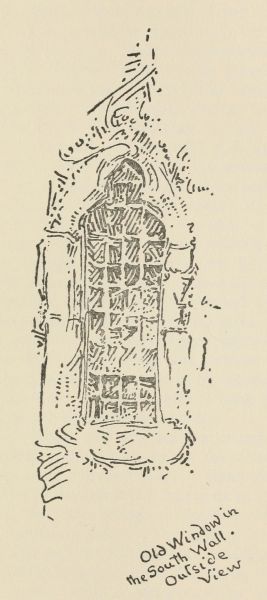 Old Window in
the South Wall.
Outside
View